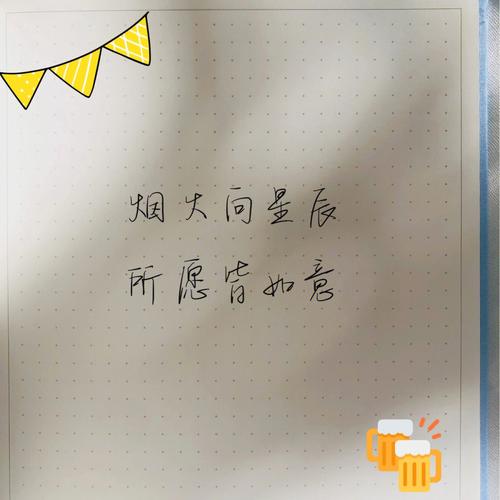 烟火向星辰
所愿皆如意